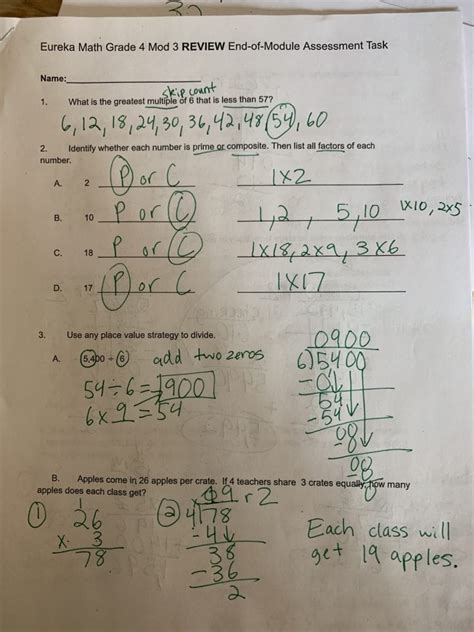 Eureka Math Grade 4 Mod 3 REVIEW End-of-Module Assessment Task
Name:
skip count
1. What is the greatest multiple of 6 that is less than 57?
6, 12, 18, 24, 30, 36, 42, 48, 54, 60
2. Identify whether each number is prime or composite. Then list all factors of each
number.
A. 2 P or C 1x2
B. 10 P or C 1, 2, 5, 10 1x10, 2x5
C. 18 P or C 1x18, 2x9, 3x6
D. 17 P or C 1x17
3. Use any place value strategy to divide.
A. 5,400 ÷ 6 add two zeros
54÷6=900
6x9=54
0900
6)5400
-0
54
-54
08
08
B. Apples come in 26 apples per crate. If 4 teachers share 3 crates equally, how many
apples does each class get?
1
① 26
x 3
78
② 19 r2
4)78
-4
38
-36
2
Each class will
get 19 apples.